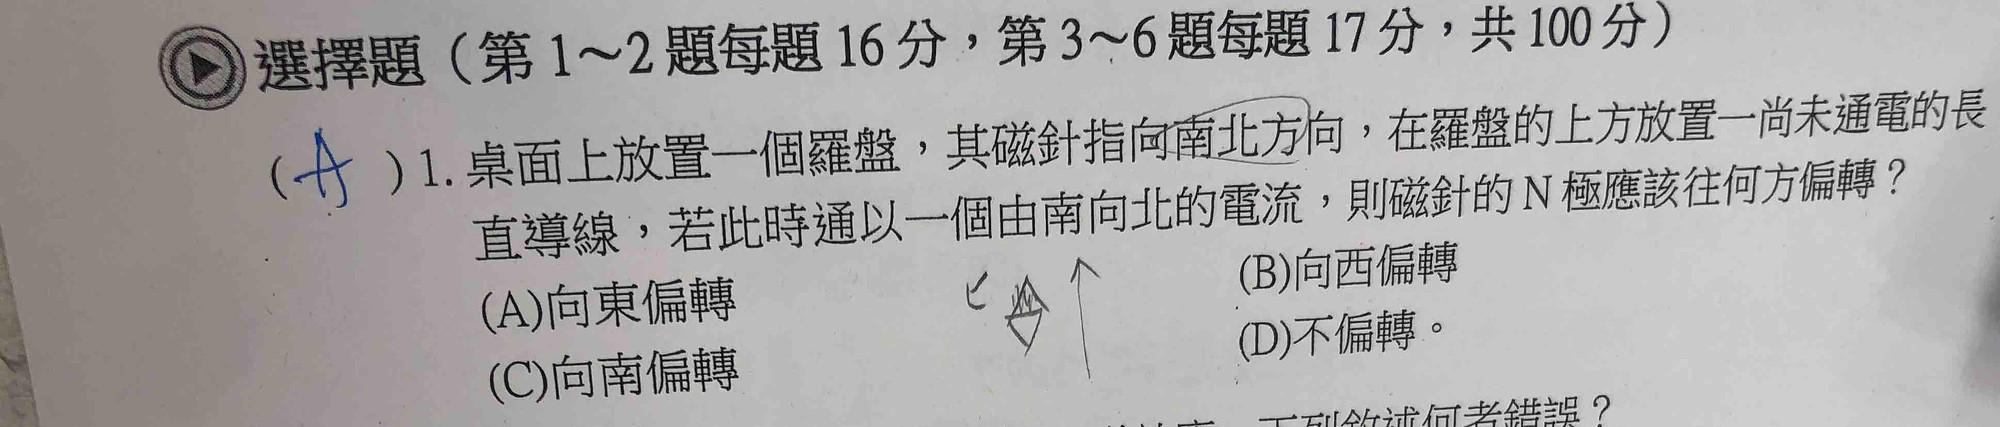 選擇題（第 1～2 題每題 16 分，第 3～6 題每題 17 分，共 100 分）
( A ) 1. 桌面上放置一個羅盤，其磁針指向南北方向，在羅盤的上方放置一尚未通電的長
直導線，若此時通以一個由南向北的電流，則磁針的 N 極應該往何方偏轉？
(A)向東偏轉
(B)向西偏轉
(C)向南偏轉
(D)不偏轉。
下列敘述何者錯誤？